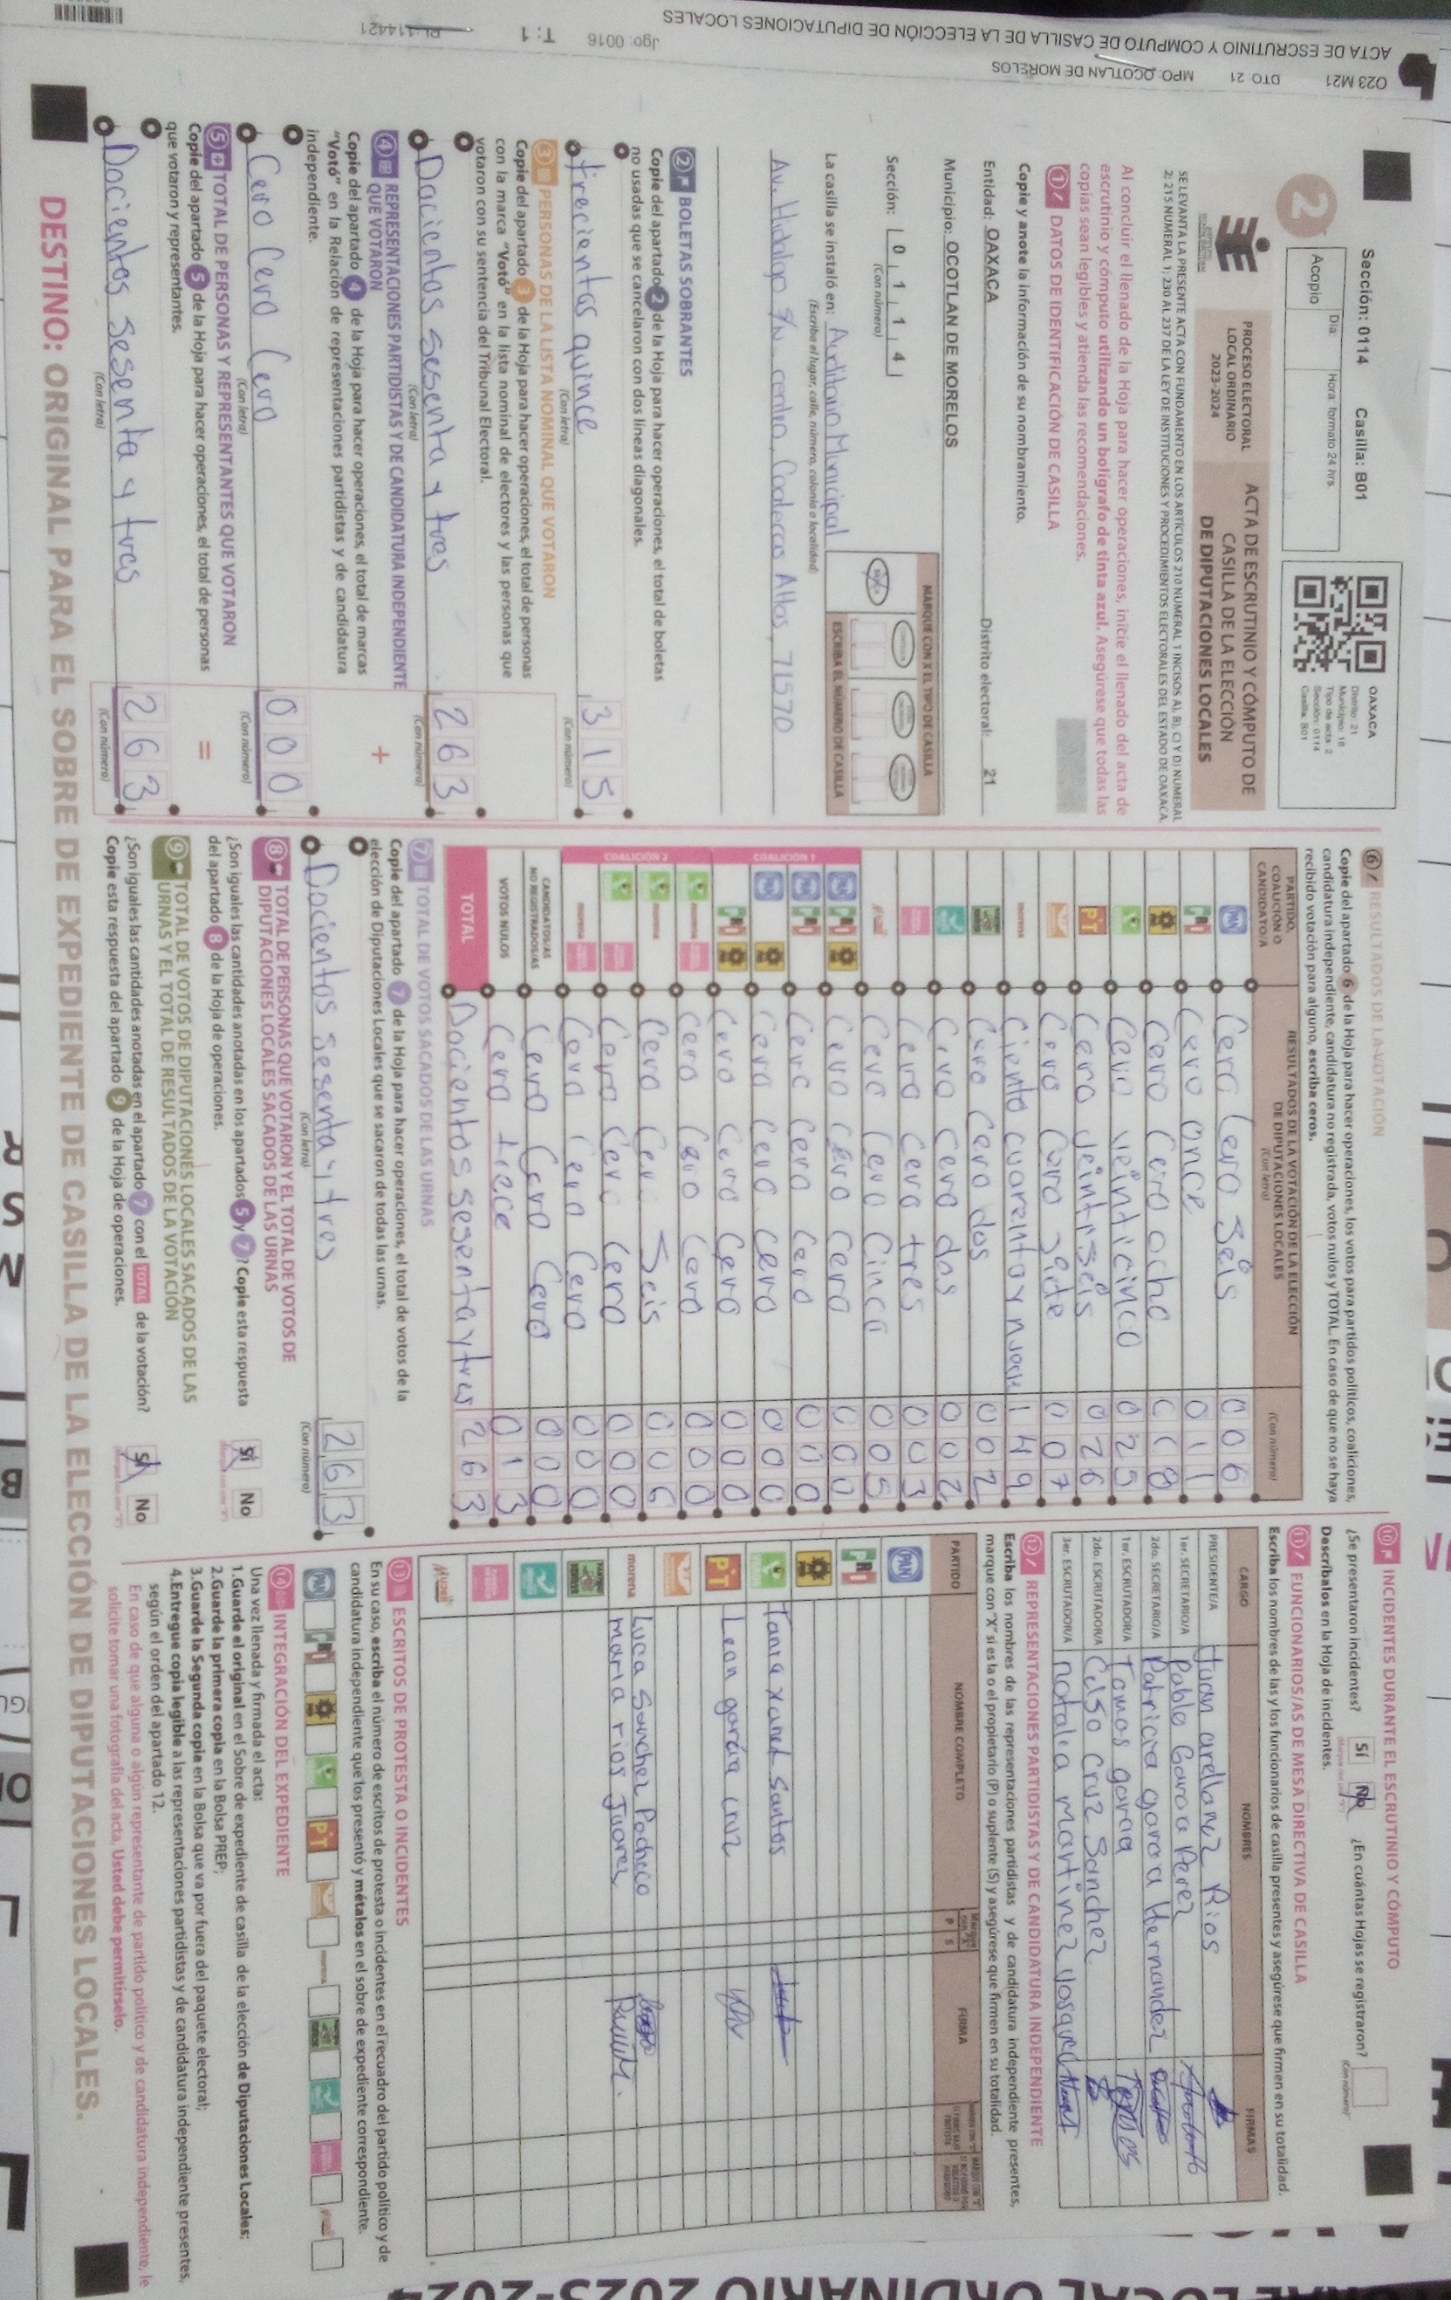 Sección: 0114 Casilla: B01
2
Acopio
Día
Hora: formato 24 hrs.
OAXACA
Distrito: 21
Municipio: 18
Tipo de acta: 2
Sección: 0114
Casilla: B01
PROCESO ELECTORAL
LOCAL ORDINARIO
2023-2024
ACTA DE ESCRUTINIO Y CÓMPUTO DE
CASILLA DE LA ELECCIÓN
DE DIPUTACIONES LOCALES
SE LEVANTA LA PRESENTE ACTA CON FUNDAMENTO EN LOS ARTÍCULOS 210 NUMERAL 1 INCISOS A), B), C) Y D) NUMERAL
2; 215 NUMERAL 1; 230 AL 237 DE LA LEY DE INSTITUCIONES Y PROCEDIMIENTOS ELECTORALES DEL ESTADO DE OAXACA
Al concluir el llenado de la Hoja para hacer operaciones, inicie el llenado del acta de
escrutinio y cómputo utilizando un bolígrafo de tinta azul. Asegúrese que todas las
copias sean legibles y atienda las recomendaciones.
1 DATOS DE IDENTIFICACIÓN DE CASILLA
Copie y anote la información de su nombramiento.
Entidad: OAXACA Distrito electoral: 21
Municipio: OCOTLAN DE MORELOS
Sección: 0 1 1 4
(Con número)
MARQUE CON X EL TIPO DE CASILLA
ESCRIBA EL NÚMERO DE CASILLA
La casilla se instaló en: Auditorio Municipal
(Escriba el lugar, calle, número, colonia o localidad)
Av. Hidalgo S/N centro, Coatecas Altas, 71570
2 BOLETAS SOBRANTES
Copie del apartado 2 de la Hoja para hacer operaciones, el total de boletas
no usadas que se cancelaron con dos líneas diagonales.
trecientas quince 315
(Con letra) (Con número)
3 PERSONAS DE LA LISTA NOMINAL QUE VOTARON
Copie del apartado 3 de la Hoja para hacer operaciones, el total de personas
con la marca "Votó" en la lista nominal de electores y las personas que
votaron con su sentencia del Tribunal Electoral.
Docientos sesenta y tres 263
(Con letra) (Con número)
4 REPRESENTACIONES PARTIDISTAS Y DE CANDIDATURA INDEPENDIENTE
QUE VOTARON
+
Copie del apartado 4 de la Hoja para hacer operaciones, el total de marcas
"Votó" en la Relación de representaciones partidistas y de candidatura
independiente.
Cero Cero Cero 000
(Con letra) (Con número)
5 TOTAL DE PERSONAS Y REPRESENTANTES QUE VOTARON
=
Copie del apartado 5 de la Hoja para hacer operaciones, el total de personas
que votaron y representantes.
Docientos sesenta y tres 263
(Con letra) (Con número)
6 RESULTADOS DE LA VOTACIÓN
Copie del apartado 6 de la Hoja para hacer operaciones, los votos para partidos políticos, coaliciones,
candidatura independiente, candidatura no registrada, votos nulos y TOTAL. En caso de que no se haya
recibido votación para alguno, escriba ceros.
PARTIDO,
COALICIÓN O
CANDIDATO/A
RESULTADOS DE LA VOTACIÓN DE LA ELECCIÓN
DE DIPUTACIONES LOCALES
(Con letra)
(Con número)
PAN Cero Cero Seis 006
PRI cero once 011
PRD Cero Cero ocho 008
Cero veinticinco 025
PT Cero veintiseis 026
Cero Cero siete 007
morena Ciento cuarenta y nueve 149
Cero Cero dos 002
Cero Cero dos 002
Cero Cero tres 003
Cero Cero Cinco 005
COALICIÓN 1
Cero Cero Cero 000
Cero Cero Cero 000
Cero Cero Cero 000
Cero Cero Cero 000
COALICIÓN 2
Cero Cero Cero 000
Cero Cero Seis 006
Cero Cero Cero 000
Cero Cero Cero 000
CANDIDATOS/AS
NO REGISTRADOS/AS Cero Cero Cero 000
VOTOS NULOS Cero trece 013
TOTAL Docientos sesenta y tres 263
7 TOTAL DE VOTOS SACADOS DE LAS URNAS
Copie del apartado 7 de la Hoja para hacer operaciones, el total de votos de la
elección de Diputaciones Locales que se sacaron de todas las urnas.
Docientos sesenta y tres 263
(Con letra) (Con número)
8 TOTAL DE PERSONAS QUE VOTARON Y EL TOTAL DE VOTOS DE
DIPUTACIONES LOCALES SACADOS DE LAS URNAS
¿Son iguales las cantidades anotadas en los apartados 5 y 7? Copie esta respuesta
del apartado 8 de la Hoja de operaciones.
Sí No
9 TOTAL DE VOTOS DE DIPUTACIONES LOCALES SACADOS DE LAS
URNAS Y EL TOTAL DE RESULTADOS DE LA VOTACIÓN
¿Son iguales las cantidades anotadas en el apartado 7 con el TOTAL de la votación?
Copie esta respuesta del apartado 9 de la Hoja de operaciones.
Sí No
10 INCIDENTES DURANTE EL ESCRUTINIO Y CÓMPUTO
¿Se presentaron incidentes? Sí No ¿En cuántas Hojas se registraron?
(Con número)
Descríbalos en la Hoja de incidentes.
11 FUNCIONARIOS/AS DE MESA DIRECTIVA DE CASILLA
Escriba los nombres de las y los funcionarios de casilla presentes y asegúrese que firmen en su totalidad.
CARGO NOMBRES FIRMAS
PRESIDENTE/A Juan arellanez Rios
1er. SECRETARIO/A Pablo Garcia Perez
2do. SECRETARIO/A Patricia garcia Hernandez
1er. ESCRUTADOR/A Tomas garcia
2do. ESCRUTADOR/A Celso Cruz Sanchez
3er. ESCRUTADOR/A natalia martinez Vasquez
12 REPRESENTACIONES PARTIDISTAS Y DE CANDIDATURA INDEPENDIENTE
Escriba los nombres de las representaciones partidistas y de candidatura independiente presentes,
marque con "X" si es la o el propietario (P) o suplente (S) y asegúrese que firmen en su totalidad.
PARTIDO NOMBRE COMPLETO P S FIRMA
PAN
PRI
PRD
Tania xanet santos
PT Leon garcia cruz
morena Luca Sanchez Pacheco
maria rios Juarez
13 ESCRITOS DE PROTESTA O INCIDENTES
En su caso, escriba el número de escritos de protesta o incidentes en el recuadro del partido político y de
candidatura independiente que los presentó y métalos en el sobre de expediente correspondiente.
PAN PRI PRD PT morena
14 INTEGRACIÓN DEL EXPEDIENTE
Una vez llenada y firmada el acta:
1.Guarde el original en el Sobre de expediente de casilla de la elección de Diputaciones Locales;
2.Guarde la primera copia en la Bolsa PREP;
3.Guarde la Segunda copia en la Bolsa que va por fuera del paquete electoral;
4.Entregue copia legible a las representaciones partidistas y de candidatura independiente presentes,
según el orden del apartado 12.
En caso de que alguna o algún representante de partido político y de candidatura independiente, le
solicite tomar una fotografía del acta, Usted debe permitírselo.
DESTINO: ORIGINAL PARA EL SOBRE DE EXPEDIENTE DE CASILLA DE LA ELECCIÓN DE DIPUTACIONES LOCALES.
O23 M21 DTO 21 MPO: OCOTLAN DE MORELOS
ACTA DE ESCRUTINIO Y COMPUTO DE CASILLA DE LA ELECCIÓN DE DIPUTACIONES LOCALES
Jgo: 0016 T: 1